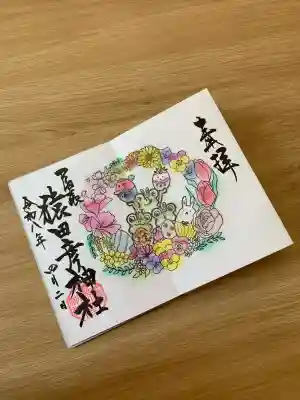 奉拝
尾張
猿田彦神社
令和八年 四月二日